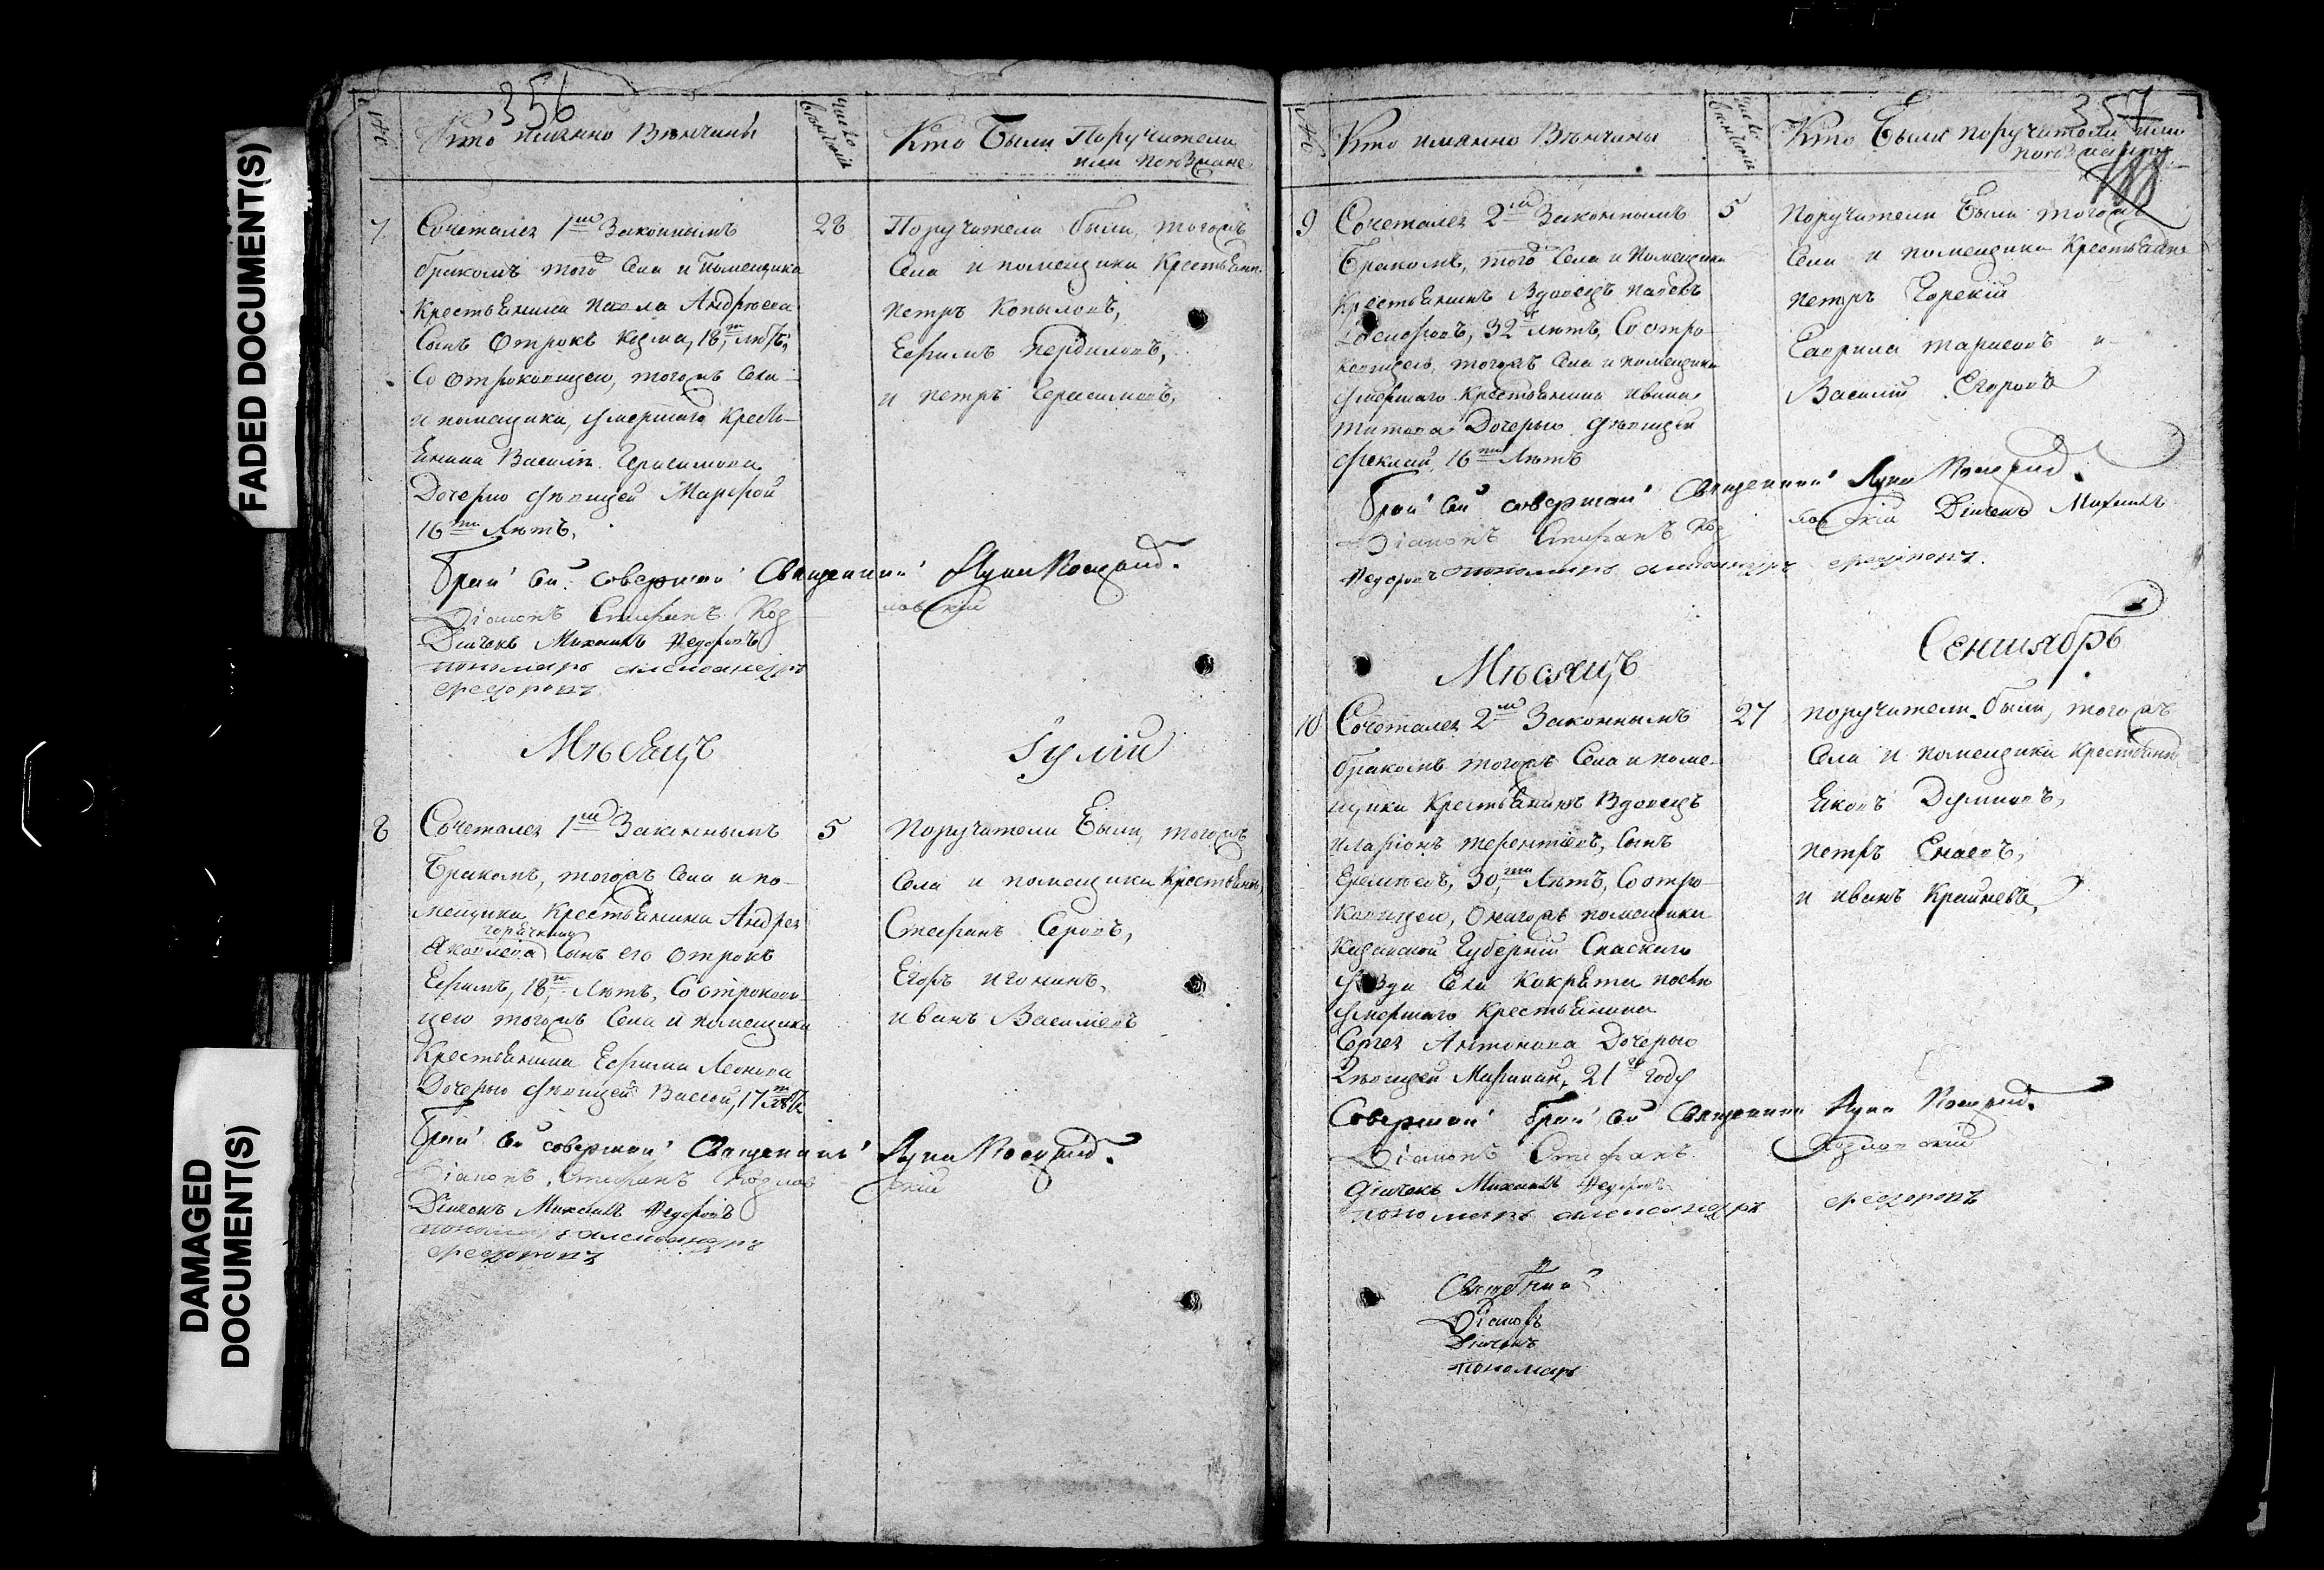 FADED DOCUMENT(S)
DAMAGED
DOCUMENT(S)
356
№
Кто имянно Венчаны
число
венчания
Кто Были Поручители
или поезжане
7
Сочетался 1м Законнымъ
бракомъ того Села и помещика
Крестьянина Андреева
Сынъ Отрокъ Козма, 18, летъ,
Со Отроковицею, тогожъ Села
и помещика, умершаго Кресть-
янина Василья Герасимова
Дочерью девицей Марфой
16ти Летъ,
28
Поручители были, тогожъ
Села и помещика Крестьяне
петръ Копыловъ,
Ефимъ
и петръ Герасимовъ,
Бракъ сей совершалъ Священникъ Лука
Диаконъ Стефанъ Коз
ловский
Дьячекъ Михаилъ Федоровъ
пономарь александръ
федоровъ
Месяцъ
Iулий
8
Сочеталея 1м Законнымъ
Бракомъ, тогожъ Села и по-
мещика Крестьянина Андрея
Яковлева Сынъ его отрокъ
Ефимъ, 18, Летъ, Со отрокови-
цею тогожъ Села и помещика
Крестьянина Ефима Леонова
Дочерью девицей Васой, 17 летъ
5
Поручители Были, тогожъ
Села и помещика Крестьяне,
Стефанъ Серовъ,
Егоръ игонинъ,
иванъ Василевъ
Бракъ сей совершалъ Священникъ Лука
Диаконъ, Стефанъ Козлов
ский
Дьячекъ Михаилъ Федоровъ
пономарь александръ
федоровъ
357
№
Кто имянно Венчаны
число
венчания
Кто Были поручители или
поезжане
9
Сочетался 2м Законнымъ
Бракомъ, того Села и Помещика
Крестьянинъ Вдовецъ павелъ
32 летъ, Со отро-
ковицею, тогожъ Села и помещика
умершаго Крестьянина ивана
титова Дочерью девицей
феклай, 16ти Летъ
5
Поручители Были тогожъ
Села и помещика Крестьяне
петръ
Гаврила тарасовъ и
Василий Егоровъ
Бракъ сей совершалъ Священникъ Лука
Диаконъ Стефанъ Коз
ловский Дьячекъ Михаилъ
Федоровъ пономарь александръ федоровъ.
Месяцъ
Сентябрь
10
Сочетался 2м Законнымъ
бракомъ тогожъ Села и поме-
щика Крестьянинъ Вдовецъ
иларионъ терентиевъ, Сынъ
30, Летъ, Со отро-
ковицею, Онагожъ помещика
Казанской Губернии Спаскаго
уезда Села Кокряти после
умершаго Крестьянина
Сергея Антонова Дочерью
девицей Маринай, 21го году
27
поручители были, тогожъ
Села и помещика Крестьяне,
Яковъ
петръ Енаевъ,
и иванъ Крайневъ,
Совершалъ бракъ сей Священникъ Лука
Диаконъ Стефанъ
Козловский
дьячекъ Михаилъ Федоровъ
пономарь александръ федоровъ
Священникъ
Диаконъ
Дьячекъ
пономарь